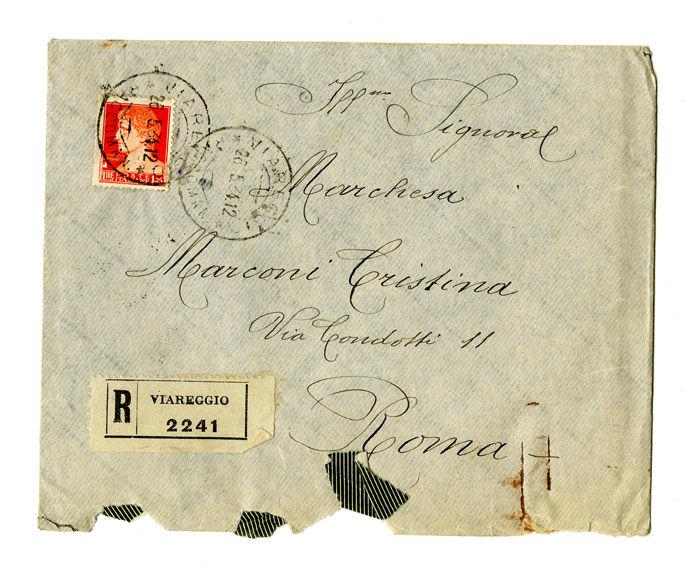 VIAREGGIO
26.5.34.12
VIAREGGIO
26.5.34.12
LIRE 1,75
Ill.ma Signora
Marchesa
Marconi Cristina
Via Condotti 11
Roma
R VIAREGGIO
2241